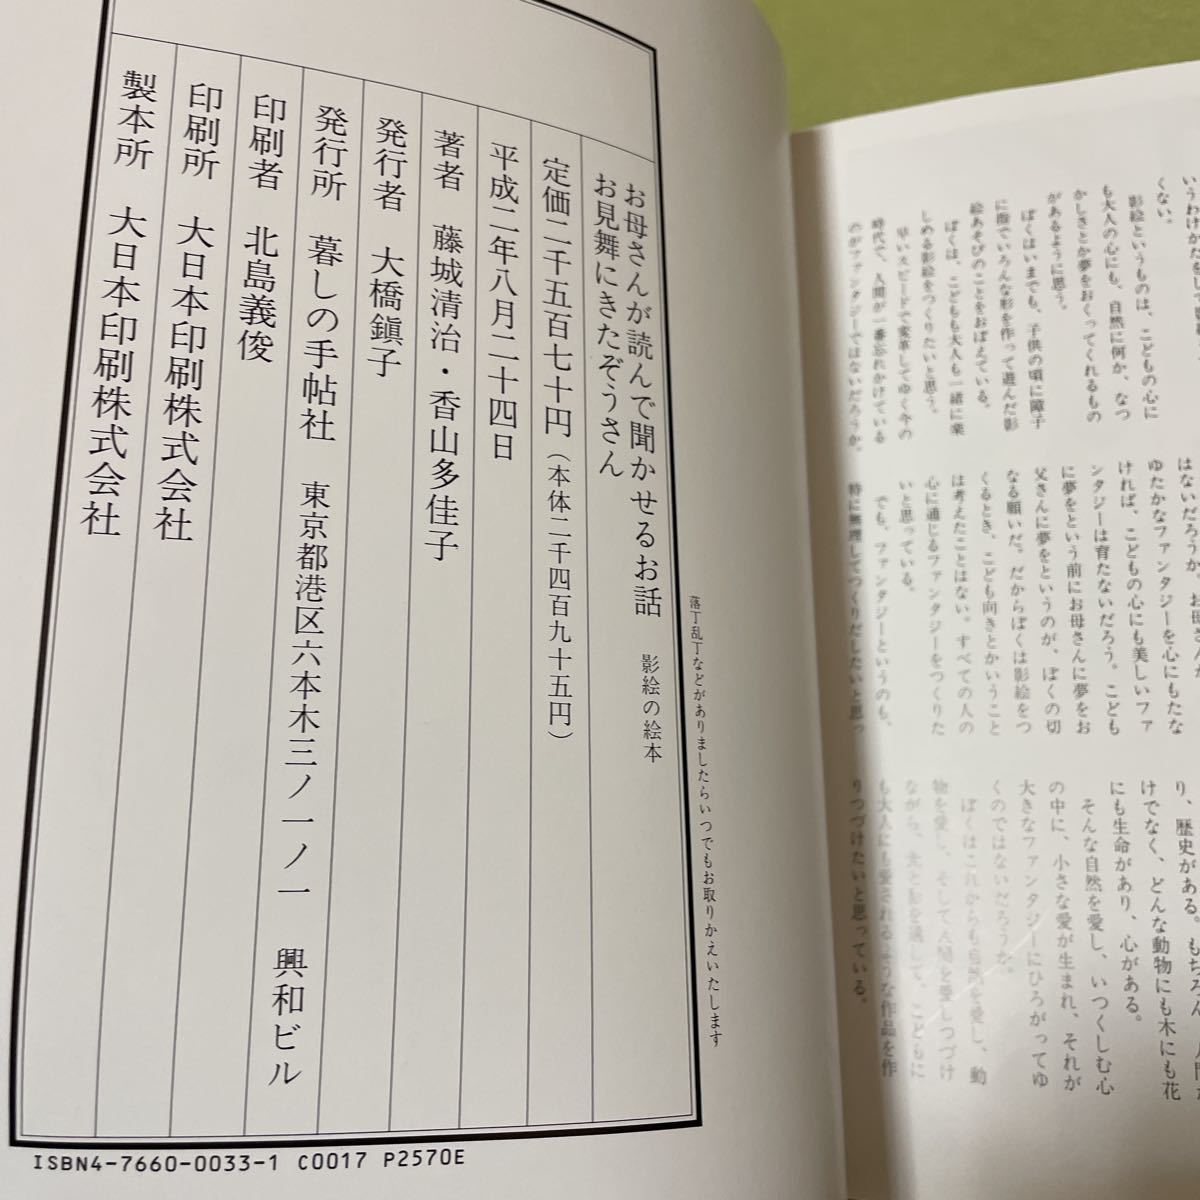 いうわけかたをして
くない。
影絵というものは、こどもの心に
も大人の心にも、自然に何か、なつ
かしさとか夢をおくってくれるもの
があるように思う。
ぼくはいまでも、子供の頃に障子
に指でいろんな形を作って遊んだ影
絵あそびのことをおぼえている。
ぼくは、こどもも大人も一緒に楽
しめる影絵をつくりたいと思う。
早いスピードで変革してゆく今の
時代で、人間が一番忘れかけている
のがファンタジーではないだろうか。
はないだろうか。お母さんが
ゆたかなファンタジーを心にもたな
ければ、こどもの心にも美しいファ
ンタジーは育たないだろう。こども
に夢をという前にお母さんに夢をお
父さんに夢をというのが、ぼくの切
なる願いだ。だからぼくは影絵をつ
くるとき、こども向きとかいうこと
は考えたことはない。すべての人の
心に通じるファンタジーをつくりた
いと思っている。
でも、ファンタジーというのも、
特に無理してつくりだしたいと思っ
り、歴史がある。もちろん
けでなく、どんな動物にも木にも花
にも生命があり、心がある。
そんな自然を愛し、いつくしむ心
の中に、小さな愛が生まれ、それが
大きなファンタジーにひろがってゆ
くのではないだろうか。
ぼくはこれからも自然を愛し、動
物を愛し、そして人間を愛しつづけ
ながら、光と影を通して、こどもに
も大人にも愛されるような作品を作
りつづけたいと思っている。
落丁乱丁などがありましたらいつでもお取りかえいたします
お母さんが読んで聞かせるお話 影絵の絵本
お見舞にきたぞうさん
定価二千五百七十円（本体二千四百九十五円）
平成二年八月二十四日
著者 藤城清治・香山多佳子
発行者 大橋鎭子
発行所 暮しの手帖社 東京都港区六本木三ノ一ノ一 興和ビル
印刷者 北島義俊
印刷所 大日本印刷株式会社
製本所 大日本印刷株式会社
ISBN4-7660-0033-1 C0017 P2570E